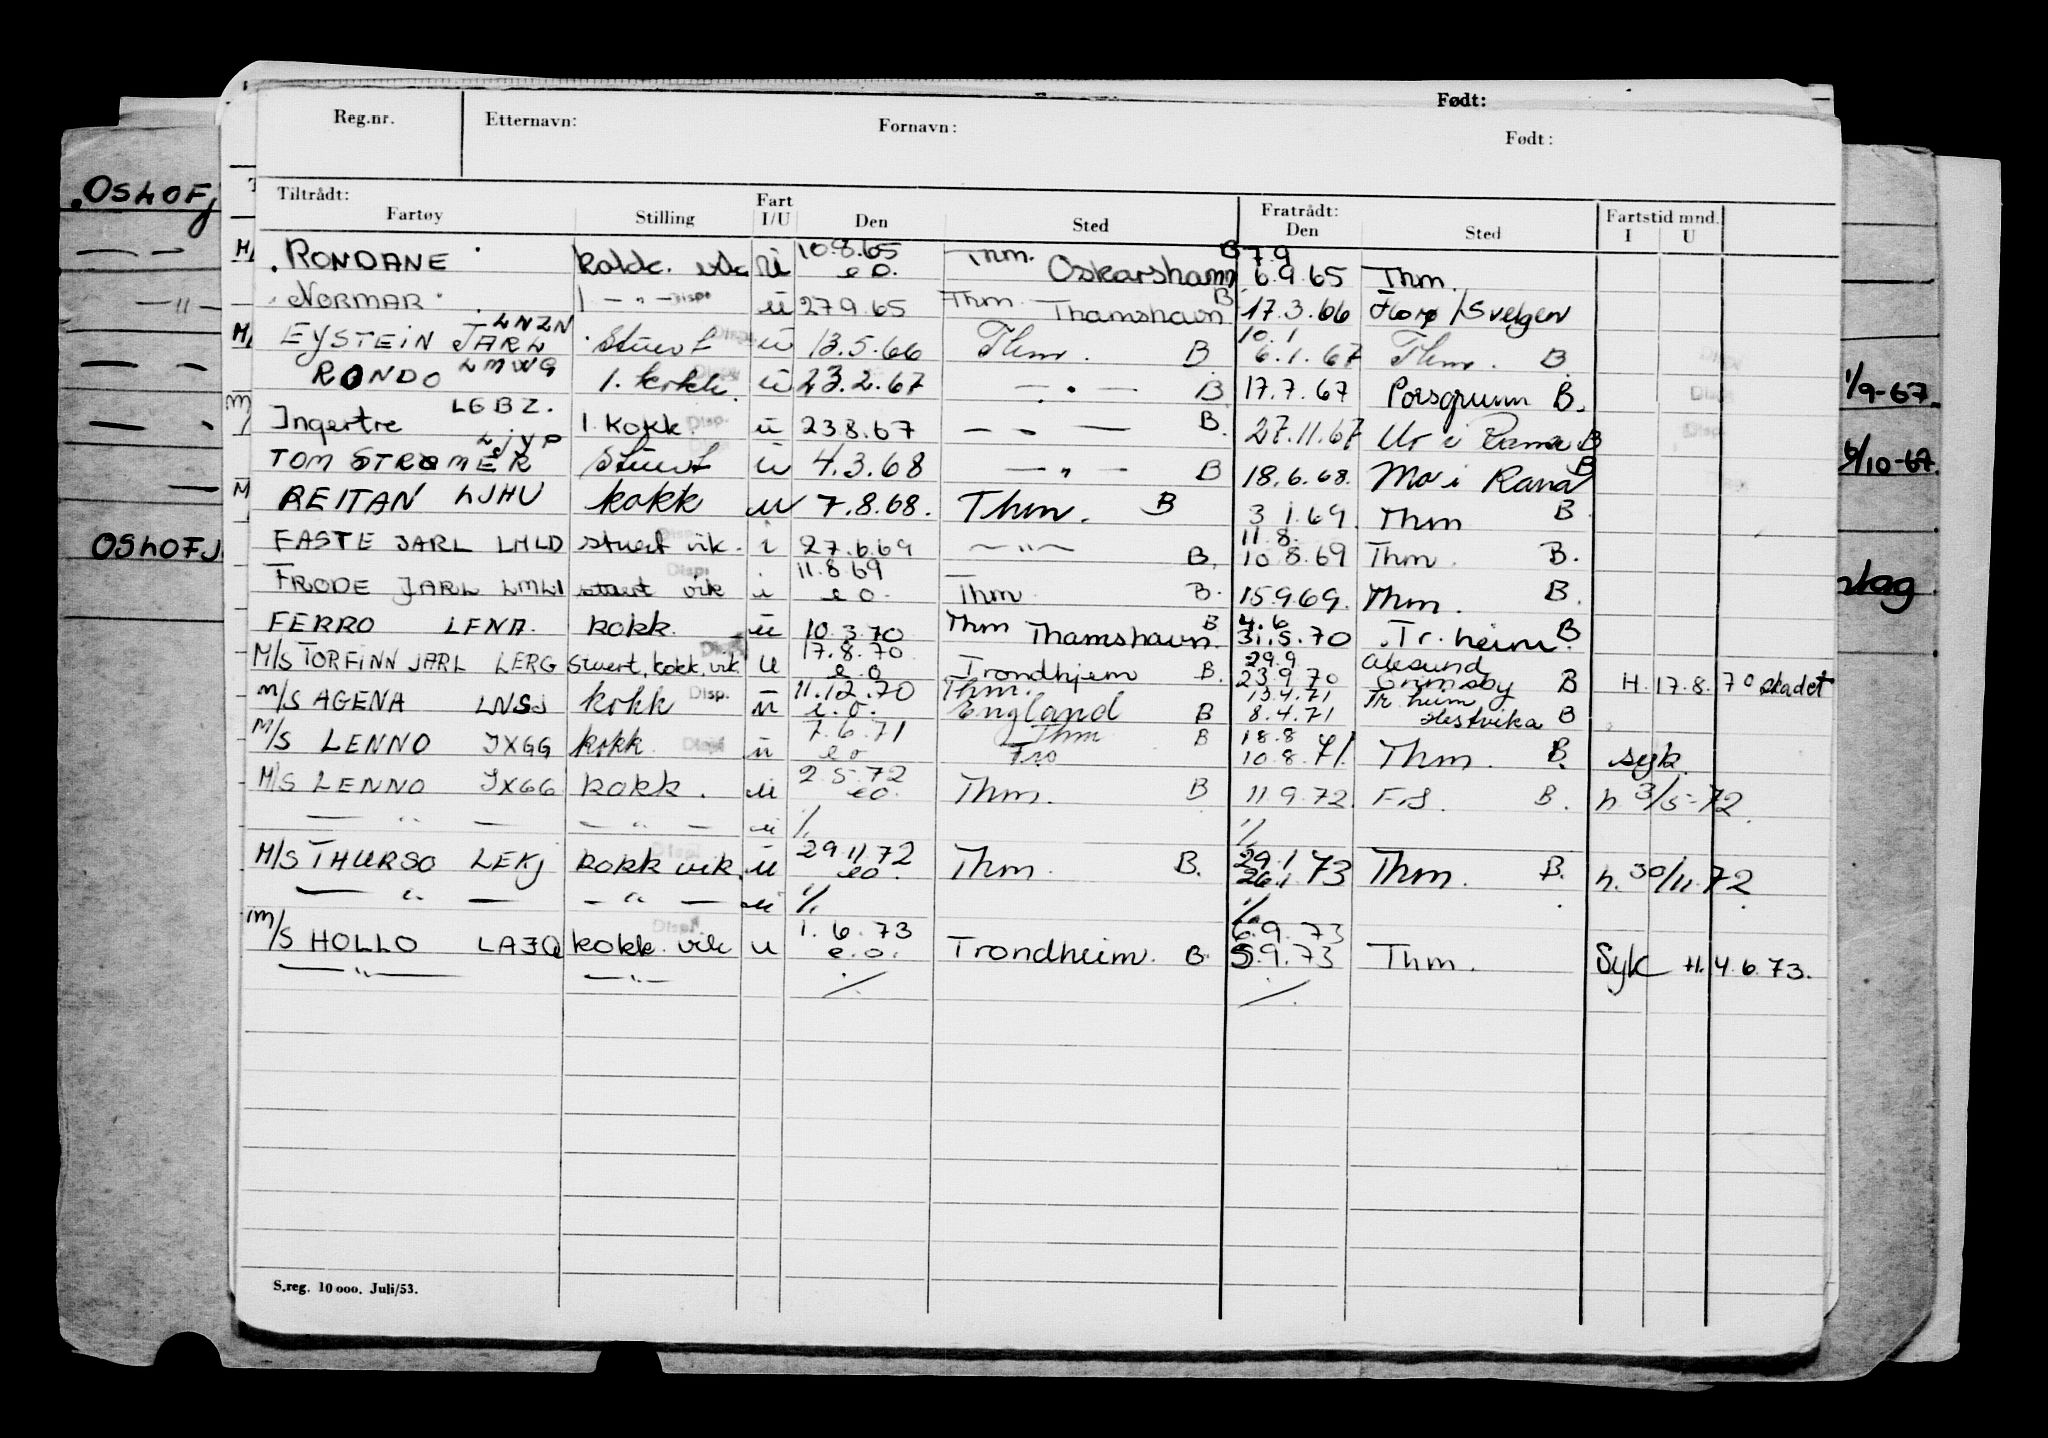 Født:
Reg.nr. Etternavn: Fornavn: Født:
Tiltrådt: Fartøy Stilling Fart I/U Den Sted Fratrådt: Den Sted Fartstid mnd. I U
RONDANE kokk. vik u 10.8.65 e.o. Thm. Oskarshamn B 7.9 6.9.65 Thm.
NORMAR 1 — " — Disp. u 27.9.65 Thm. Thamshavn B 17.3.66 Florø/Svelgen
EYSTEIN JARL LNZN Stuert u 13.5.66 Thm. B 10.1 6.1.67 Thm. B
RONDO LMWG 1. kokk. u 23.2.67 — " — B 17.7.67 Porsgrunn B.
Ingertre LGBZ. 1. Kokk. Disp. u 23.8.67 — " — B. 27.11.67 B
TOM STRØMER LJYP Stuert u 4.3.68 — " — B 18.6.68. Mo i Rana B
REITAN LJHU kokk u 7.8.68. Thm. B 3 1.69. Thm B
FASTE JARL LMLD stuert vik. i 27.6.69 — " — B. 11.8. 10.8.69 Thm. B.
FRODE JARL LMLI stuert vik Disp. i 11.8.69 e.o. Thm B. 15.9.69. Thm. B.
FERRO LENA. kokk. u 10.3.70 Thm Thamshavn. B 4.6 31.5.70 Tr.heim. B
M/S TORFINN JARL LERG Stuert, kokk, vik. u 17.8.70 e.o Trondhjem B. 29.9 23.9.70 Ålesund Grimsby B H. 17.8.70 skadet
M/S AGENA LNSJ kokk Disp. u 11.12.70 e.o. Thm. England B 13.4.71 8.4.71 Tr.heim Hestvika B
M/S LENNO JXGG kokk. u 7.6.71 e.o Thm Fro B 18.8 10.8.71. Thm. B. syk.
M/S LENNO JXGG kokk. u 2.5.72 e.o. Thm. B 11.9.72. F.S. B. h 3/5-72
— " — — " — u ./. ./.
M/S THURSO LEKJ kokk vik. u 29.11.72 e.o. Thm. B. 29.1 26.1 73 Thm. B. h. 30/11.72
— " — — " — u ./. ./.
M/S HOLLO LA3Q kokk. vik u 1.6.73 e.o. Trondheim. B. 6.9.73 5.9.73 Thm. Syk H. 4.6.73.
— " — — " — ./. ./.
S.reg. 10 000. Juli/53.
OSLOFJ
— " —
OSLOFJ
1/9-67.
/10-67.